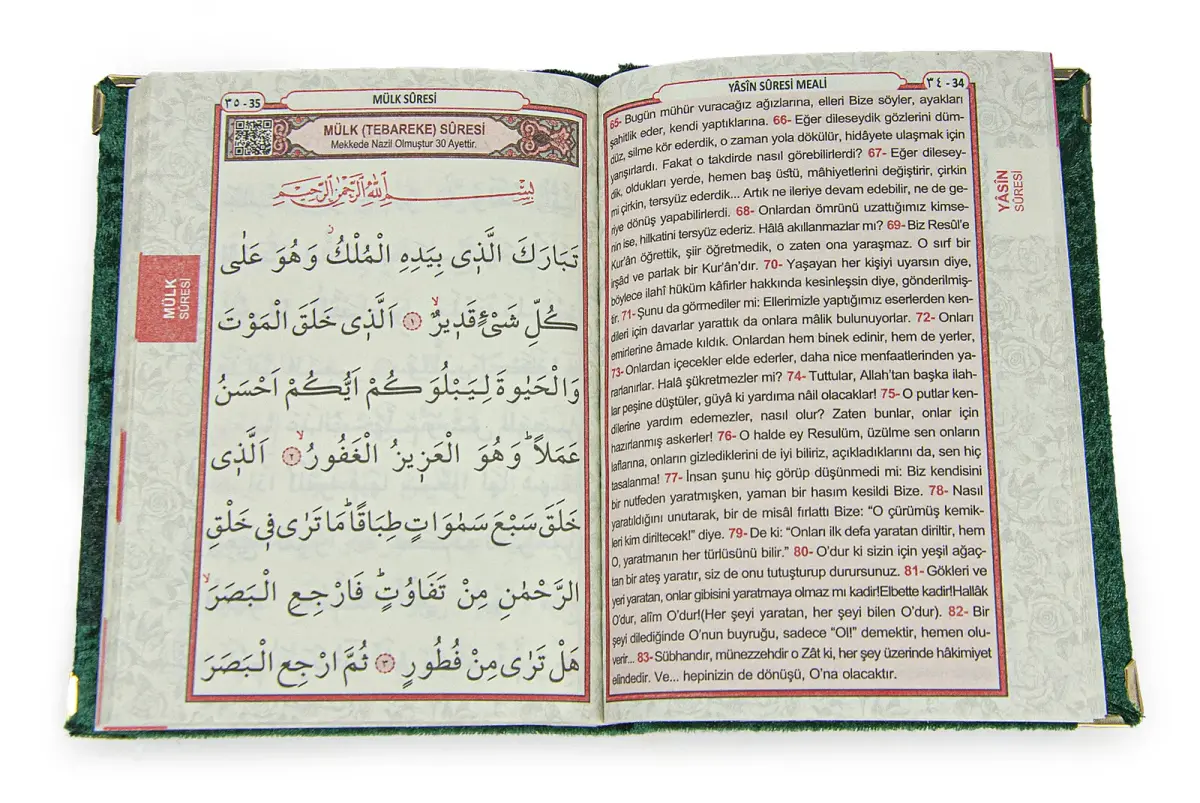 YÂSÎN SÛRESİ MEALİ
٣٤ - 34
65- Bugün mühür vuracağız ağızlarına, elleri Bize söyler, ayakları
şahitlik eder, kendi yaptıklarına. 66- Eğer dileseydik gözlerini düm-
düz, silme kör ederdik, o zaman yola dökülür, hidâyete ulaşmak için
yarışırlardı. Fakat o takdirde nasıl görebilirlerdi? 67- Eğer dilesey-
dik, oldukları yerde, hemen baş üstü, mâhiyetlerini değiştirir, çirkin
mi çirkin, tersyüz ederdik... Artık ne ileriye devam edebilir, ne de ge-
riye dönüş yapabilirlerdi. 68- Onlardan ömrünü uzattığımız kimse-
nin ise, hilkatini tersyüz ederiz. Hâlâ akıllanmazlar mı? 69- Biz Resûl'e
Kur'ân öğrettik, şiir öğretmedik, o zaten ona yaraşmaz. O sırf bir
irşâd ve parlak bir Kur'ân'dır. 70- Yaşayan her kişiyi uyarsın diye,
böylece ilahî hüküm kâfirler hakkında kesinleşsin diye, gönderilmiş-
tir. 71- Şunu da görmediler mi: Ellerimizle yaptığımız eserlerden ken-
dileri için davarlar yarattık da onlara mâlik bulunuyorlar. 72- Onları
emirlerine âmade kıldık. Onlardan hem binek edinir, hem de yerler,
73- Onlardan içecekler elde ederler, daha nice menfaatlerinden ya-
rarlanırlar. Halâ şükretmezler mi? 74- Tuttular, Allah'tan başka ilah-
lar peşine düştüler, güyâ ki yardıma nâil olacaklar! 75- O putlar ken-
dilerine yardım edemezler, nasıl olur? Zaten bunlar, onlar için
hazırlanmış askerler! 76- O halde ey Resulüm, üzülme sen onların
laflarına, onların gizlediklerini de iyi biliriz, açıkladıklarını da, sen hiç
tasalanma! 77- İnsan şunu hiç görüp düşünmedi mi: Biz kendisini
bir nutfeden yaratmışken, yaman bir hasım kesildi Bize. 78- Nasıl
yaratıldığını unutarak, bir de misâl fırlattı Bize: “O çürümüş kemik-
leri kim diriltecek!” diye. 79- De ki: “Onları ilk defa yaratan diriltir, hem
O, yaratmanın her türlüsünü bilir.” 80- O'dur ki sizin için yeşil ağaç-
tan bir ateş yaratır, siz de onu tutuşturup durursunuz. 81- Gökleri ve
yeri yaratan, onlar gibisini yaratmaya olmaz mı kadir!Elbette kadir!Hallâk
O'dur, alîm O'dur!(Her şeyi yaratan, her şeyi bilen O'dur). 82- Bir
şeyi dilediğinde O'nun buyruğu, sadece “Ol!” demektir, hemen olu-
verir... 83- Sübhandır, münezzehdir o Zât ki, her şey üzerinde hâkimiyet
elindedir. Ve... hepinizin de dönüşü, O'na olacaktır.
YÂSÎN
SÛRESİ
٣٥ - 35
MÜLK SÛRESİ
MÜLK (TEBAREKE) SÛRESİ
Mekkede Nazil Olmuştur 30 Ayettir.
بِسْمِ اللّٰهِ الرَّحْمٰنِ الرَّحِيمِ
تَبَارَكَ الَّذ۪ي بِيَدِهِ الْمُلْكُۘ وَهُوَ عَلٰى
كُلِّ شَيْءٍ قَد۪يرٌۙ ١ اَلَّذ۪ي خَلَقَ الْمَوْتَ
وَالْحَيٰوةَ لِيَبْلُوَكُمْ اَيُّكُمْ اَحْسَنُ
عَمَلاًۜ وَهُوَ الْعَز۪يزُ الْغَفُورُۙ ٢ اَلَّذ۪ي
خَلَقَ سَبْعَ سَمٰوَاتٍ طِبَاقًاۜ مَا تَرٰى ف۪ي خَلْقِ
الرَّحْمٰنِ مِنْ تَفَاوُتٍۜ فَارْجِعِ الْبَصَرَۙ
هَلْ تَرٰى مِنْ فُطُورٍ ٣ ثُمَّ ارْجِعِ الْبَصَرَ
MÜLK
SÛRESİ